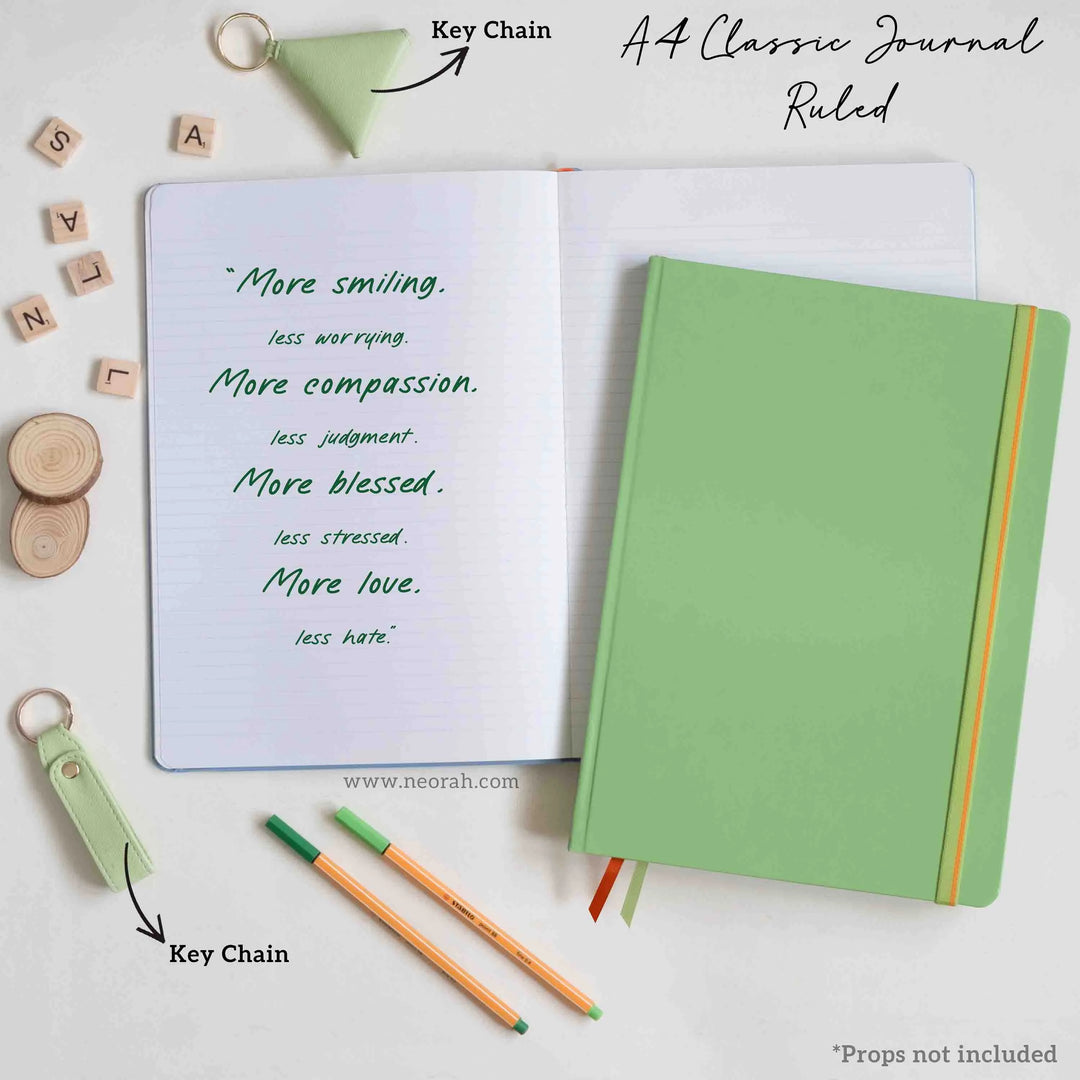 Key Chain
A4 Classic Journal
Ruled
S
A
A
L
N
L
"More smiling.
less worrying.
More compassion.
less judgment.
More blessed.
less stressed.
More love.
less hate."
www.neorah.com
STABILO point 88
Key Chain
*Props not included